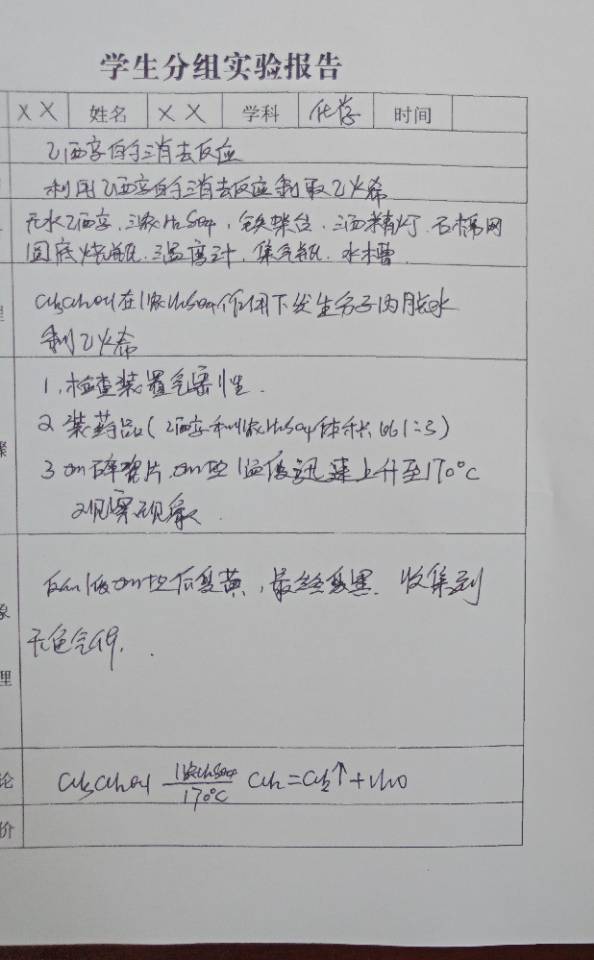 学生分组实验报告
XX 姓名 XX 学科 化学 时间
乙醇的消去反应
利用乙醇的消去反应制取乙烯
无水乙醇、浓H₂SO₄、铁架台、酒精灯、石棉网
圆底烧瓶、温度计、集气瓶、水槽
CH₃CH₂OH在浓H₂SO₄作用下发生分子内脱水
理
制乙烯
1、检查装置气密性.
2、装药品(乙醇和浓H₂SO₄体积比1:3)
骤
3、加碎瓷片,加热,温度迅速上升至170℃
观察现象.
加热后变黄,最终变黑.收集到
象
无色气体.
理
论 CH₃CH₂OH 浓H₂SO₄ 170℃ CH₂=CH₂↑+H₂O
价